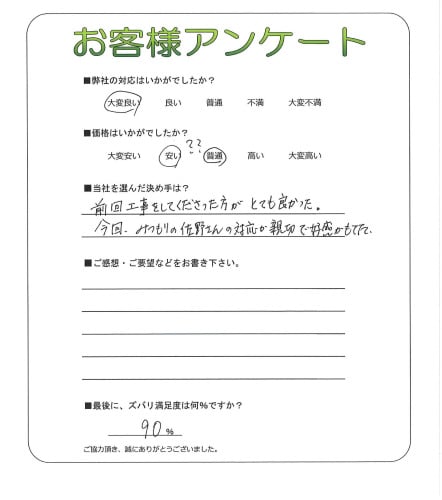 お客様アンケート
■弊社の対応はいかがでしたか？
大変良い 良い 普通 不満 大変不満
■価格はいかがでしたか？
??
大変安い 安い 普通 高い 大変高い
■当社を選んだ決め手は？
前回工事をしてくださった方が とても良かった。
今回、みつもりの佐野さんの対応が親切で好感がもてた、
■ご感想・ご要望などをお書き下さい。
■最後に、ズバリ満足度は何%ですか？
90 %
ご協力頂き、誠にありがとうございました。